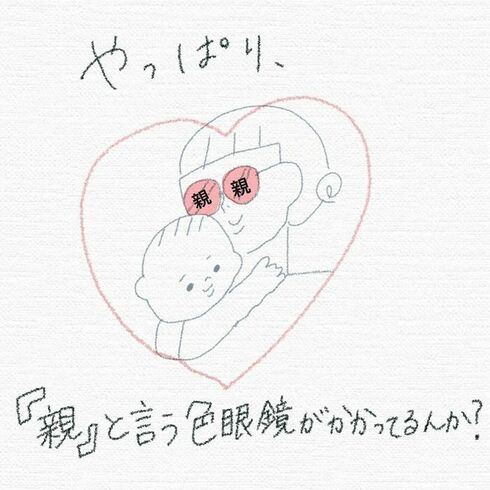 やっぱり、
親 親
『親』と言う色眼鏡がかかってるんか?